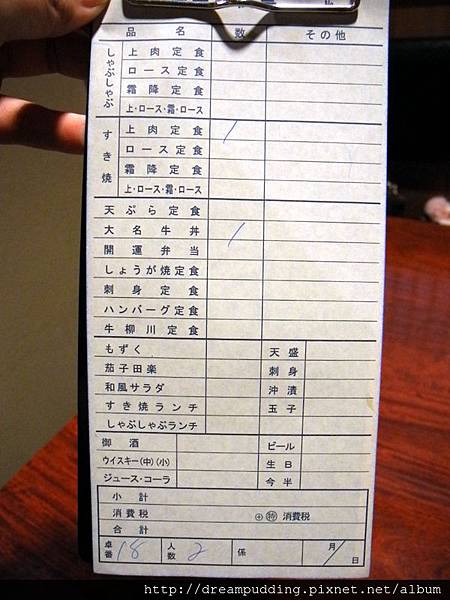 品 名 数 その他
しゃぶしゃぶ
上肉定食
ロース定食
霜降定食
上・ロース・霜・ロース
すき焼
上肉定食 /
ロース定食
霜降定食
上・ロース・霜・ロース
天ぷら定食
大名牛丼 /
開運弁当
しょうが焼定食
刺身定食
ハンバーグ定食
牛柳川定食
もずく 天盛
茄子田楽 刺身
和風サラダ 沖漬
すき焼ランチ 玉子
しゃぶしゃぶランチ
御酒 ビール
ウイスキー(中)(小) 生B
ジュース・コーラ 今半
小計
消費税 ⊕ ㊕ 消費税
合計
卓番 18 人数 2 係 月/日
http://dreampudding.pixnet.net/album